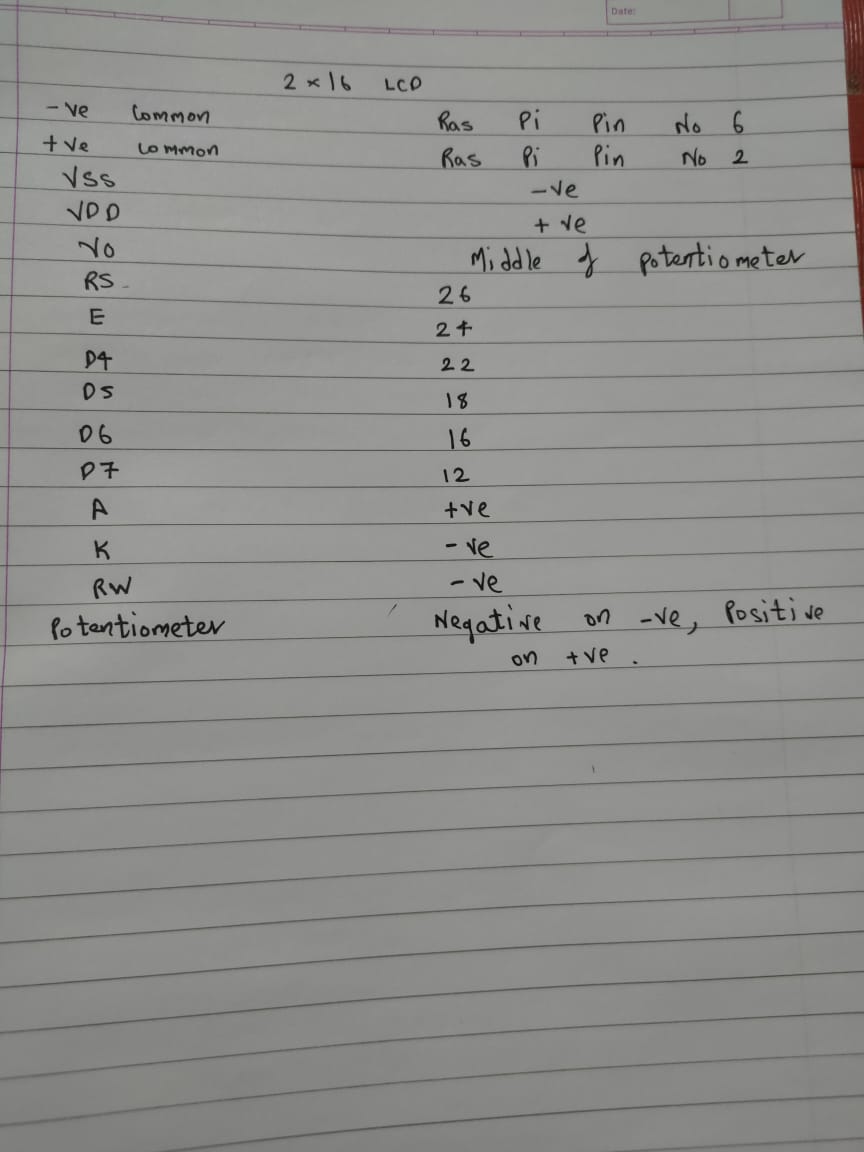 Date:
2 × 16 LCD
-ve Common Ras Pi Pin No 6
+ve common Ras Pi Pin No 2
VSS -ve
VDD + ve
VO Middle of potentiometer
RS 26
E 24
D4 22
D5 18
D6 16
D7 12
A +ve
K - ve
RW - ve
Potentiometer Negative on -ve, Positive
on +ve .